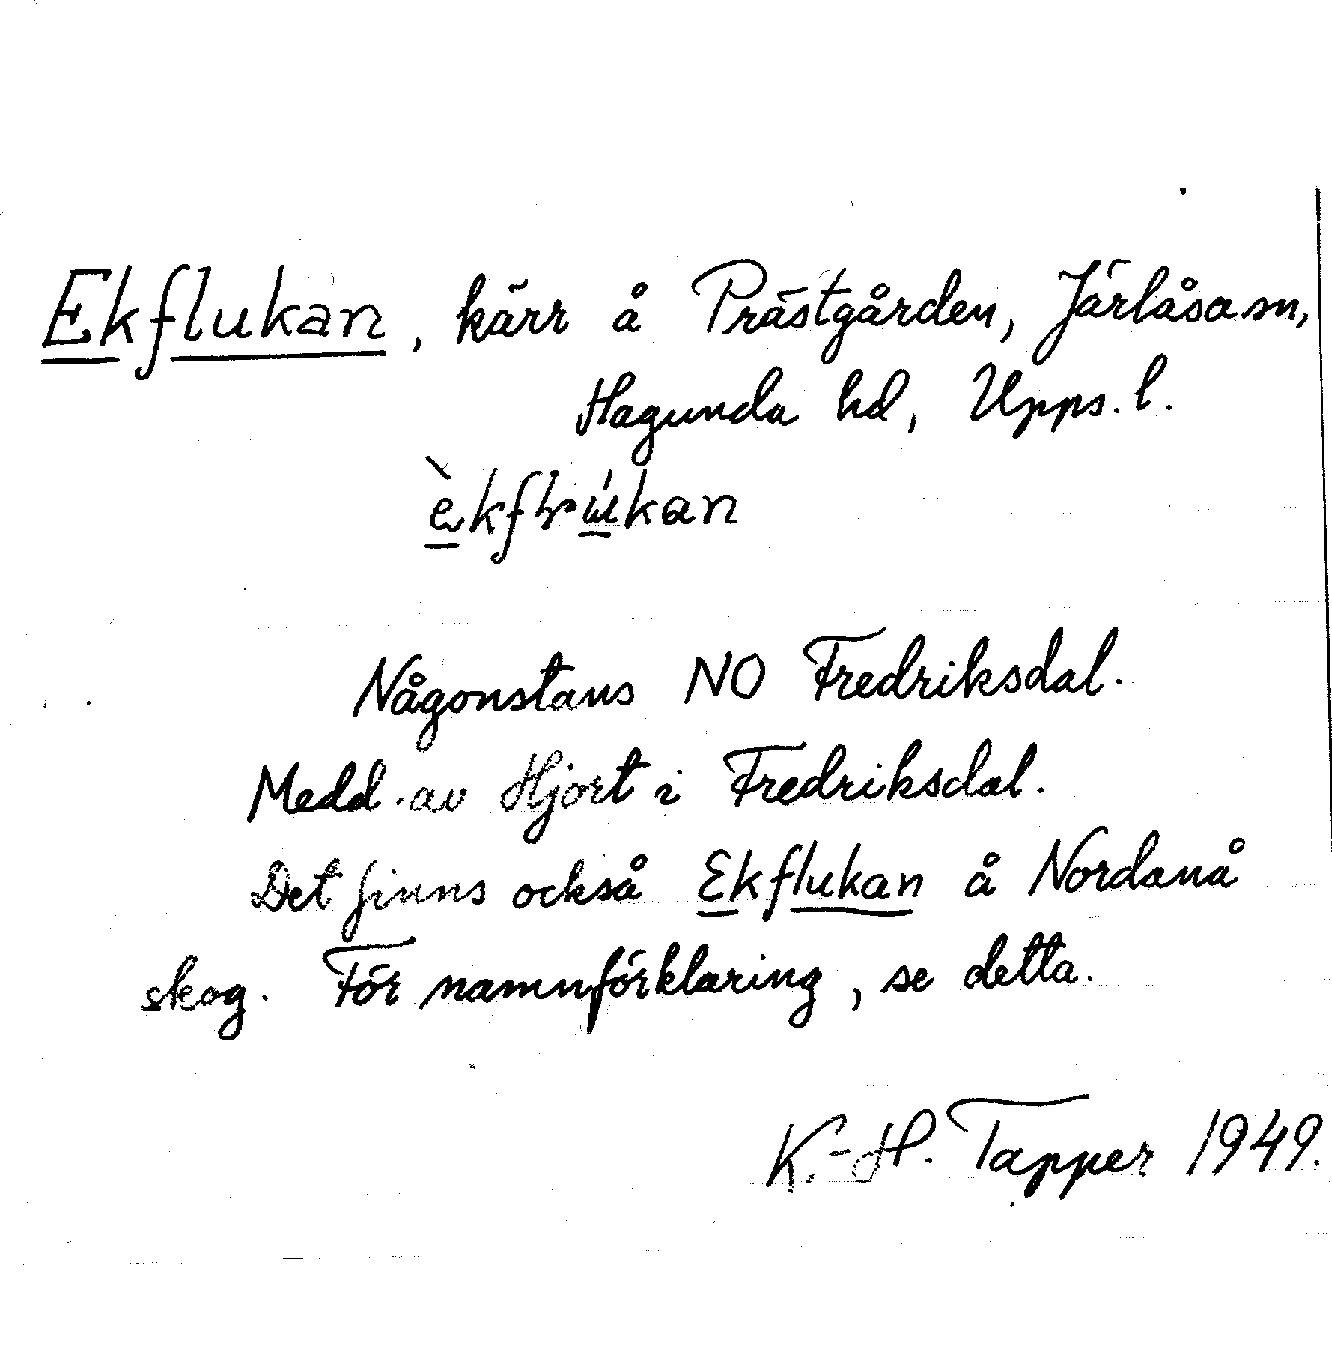 Ekflukan, kärr å Prästgården, Järlåsa sn,
Hagunda hd, Upps. l.
Någonstans NO Fredriksdal.
Medd. av Hjort i Fredriksdal.
Det finns också Ekflukan å Nordanå
skog. För namnförklaring, se detta.
K.-H. Tapper 1949.